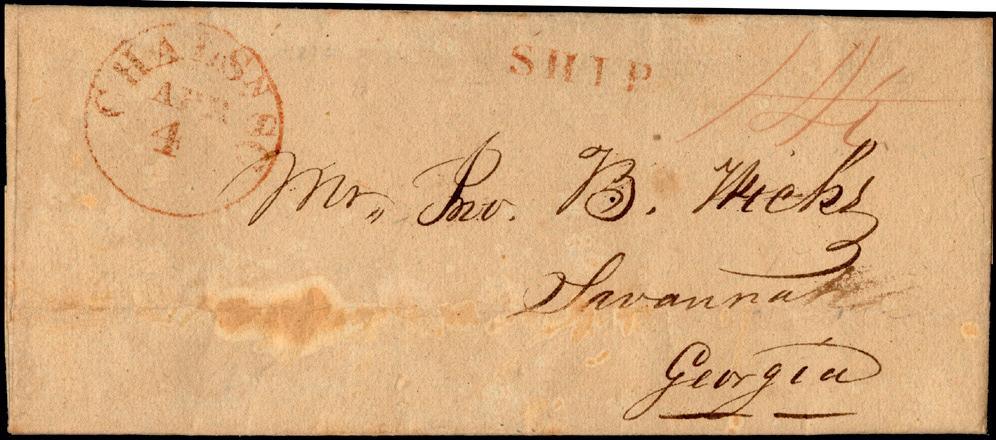 CHALSN
APR
4
SHIP
Mr. Jno. B. Wicks
Savannah
Georgia